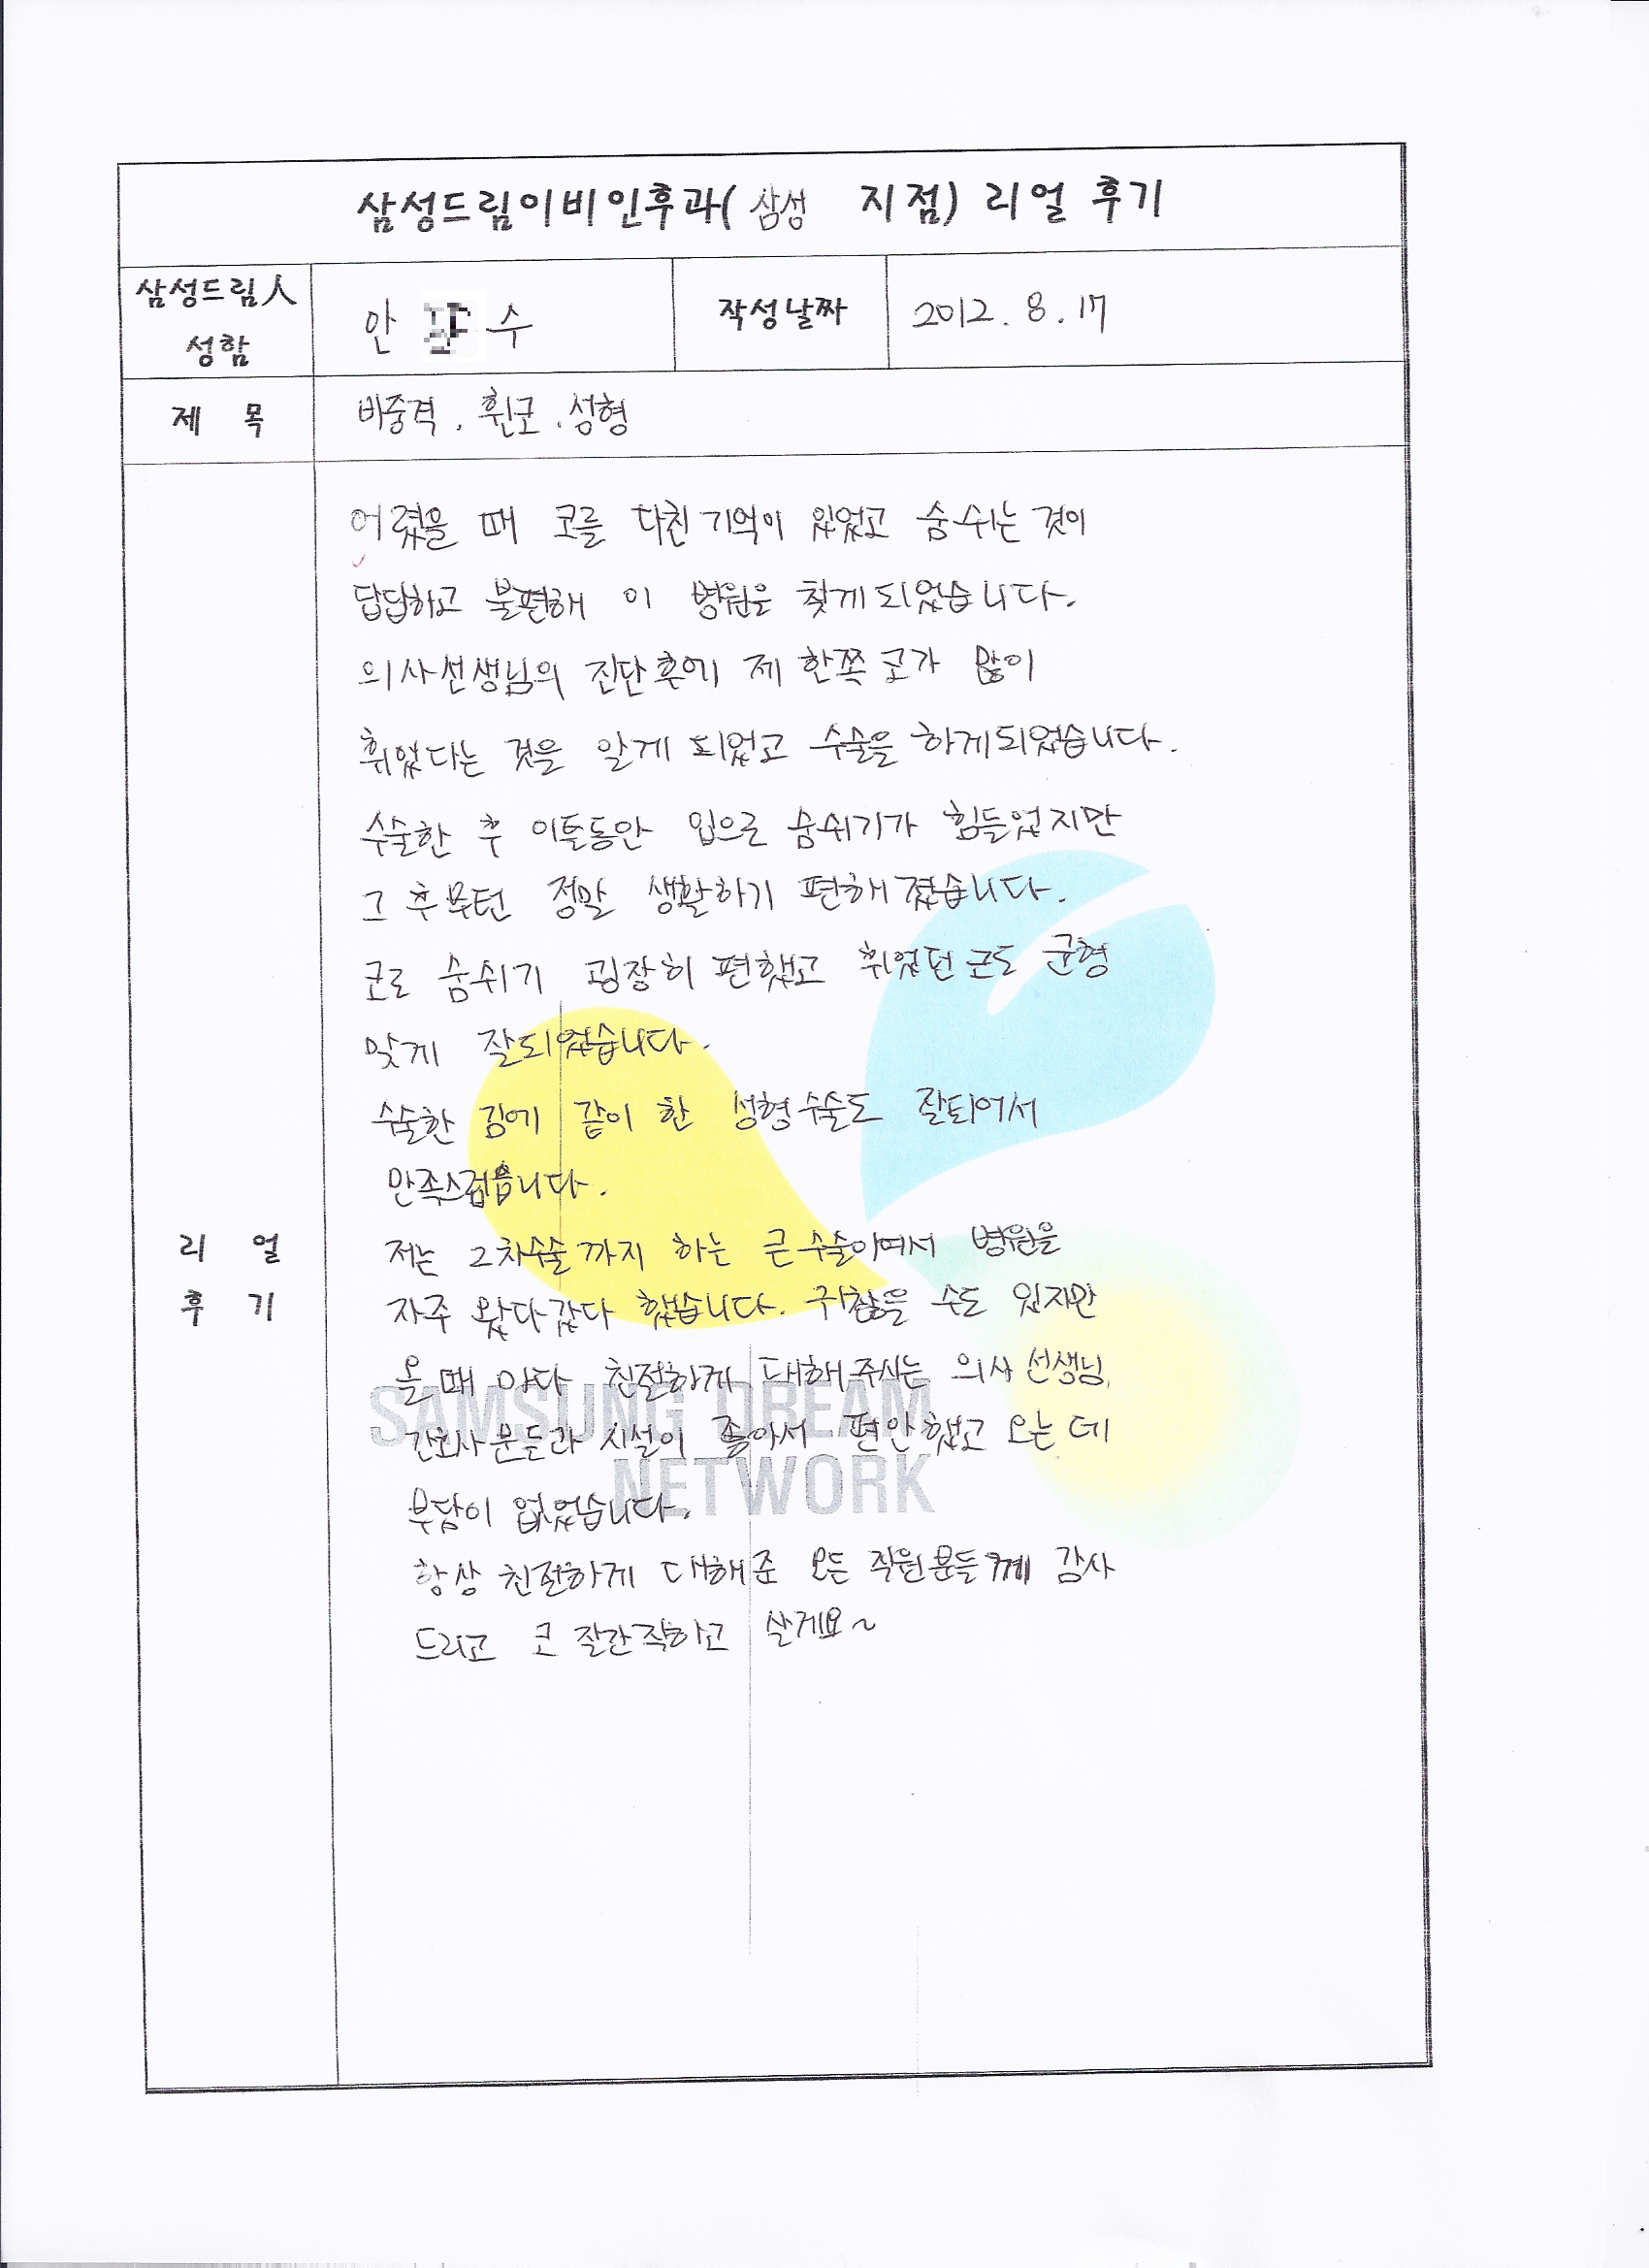 삼성드림이비인후과(삼성 지점) 리얼 후기
삼성드림人 성함
안 수
작성날짜
2012. 8. 17
제 목
비중격. 휜코. 성형
리 얼 후 기
어렸을 때 코를 다친 기억이 있었고 숨쉬는 것이
답답하고 불편해 이 병원을 찾게되었습니다.
의사선생님의 진단후에 제 한쪽 코가 많이
휘었다는 것을 알게 되었고 수술을 하게되었습니다.
수술한 후 이틀동안 입으로 숨쉬기가 힘들었지만
그 후부턴 정말 생활하기 편해졌습니다.
코로 숨쉬기 굉장히 편했고 휘었던 코도 균형
맞게 잘되었습니다.
수술한 김에 같이 한 성형수술도 잘되어서
만족스럽습니다.
저는 2차수술까지 하는 큰수술이여서 병원을
자주 왔다갔다 했습니다. 귀찮을 수도 있지만
올 때 마다 친절하게 대해주시는 의사선생님,
간호사분들과 시설이 좋아서 편안했고 오는 데
부담이 없었습니다.
항상 친절하게 대해준 모든 직원분들께 감사
드리고 코 잘간직하고 살게요~
SAMSUNG DREAM
NETWORK